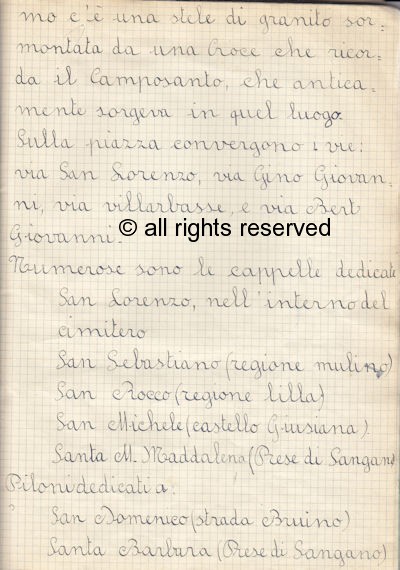 mo c'è una stele di granito sor=
montata da una Croce che ricor=
da il Camposanto, che antica=
mente sorgeva in quel luogo.
Sulla piazza convergono 4 vie:
via San Lorenzo, via Gino Giovan=
ni, via villarbasse, e via Bert
Giovanni.
© all rights reserved
Numerose sono le cappelle dedicate
San Lorenzo, nell'interno del
cimitero
San Sebastiano (regione mulino)
San Rocco (regione lilla)
San Michele (castello Giusiana).
Santa M. Maddalena (Prese di Sangano
Piloni dedicati a:
San Domenico (strada Bruino)
Santa Barbara (Prese di Sangano)